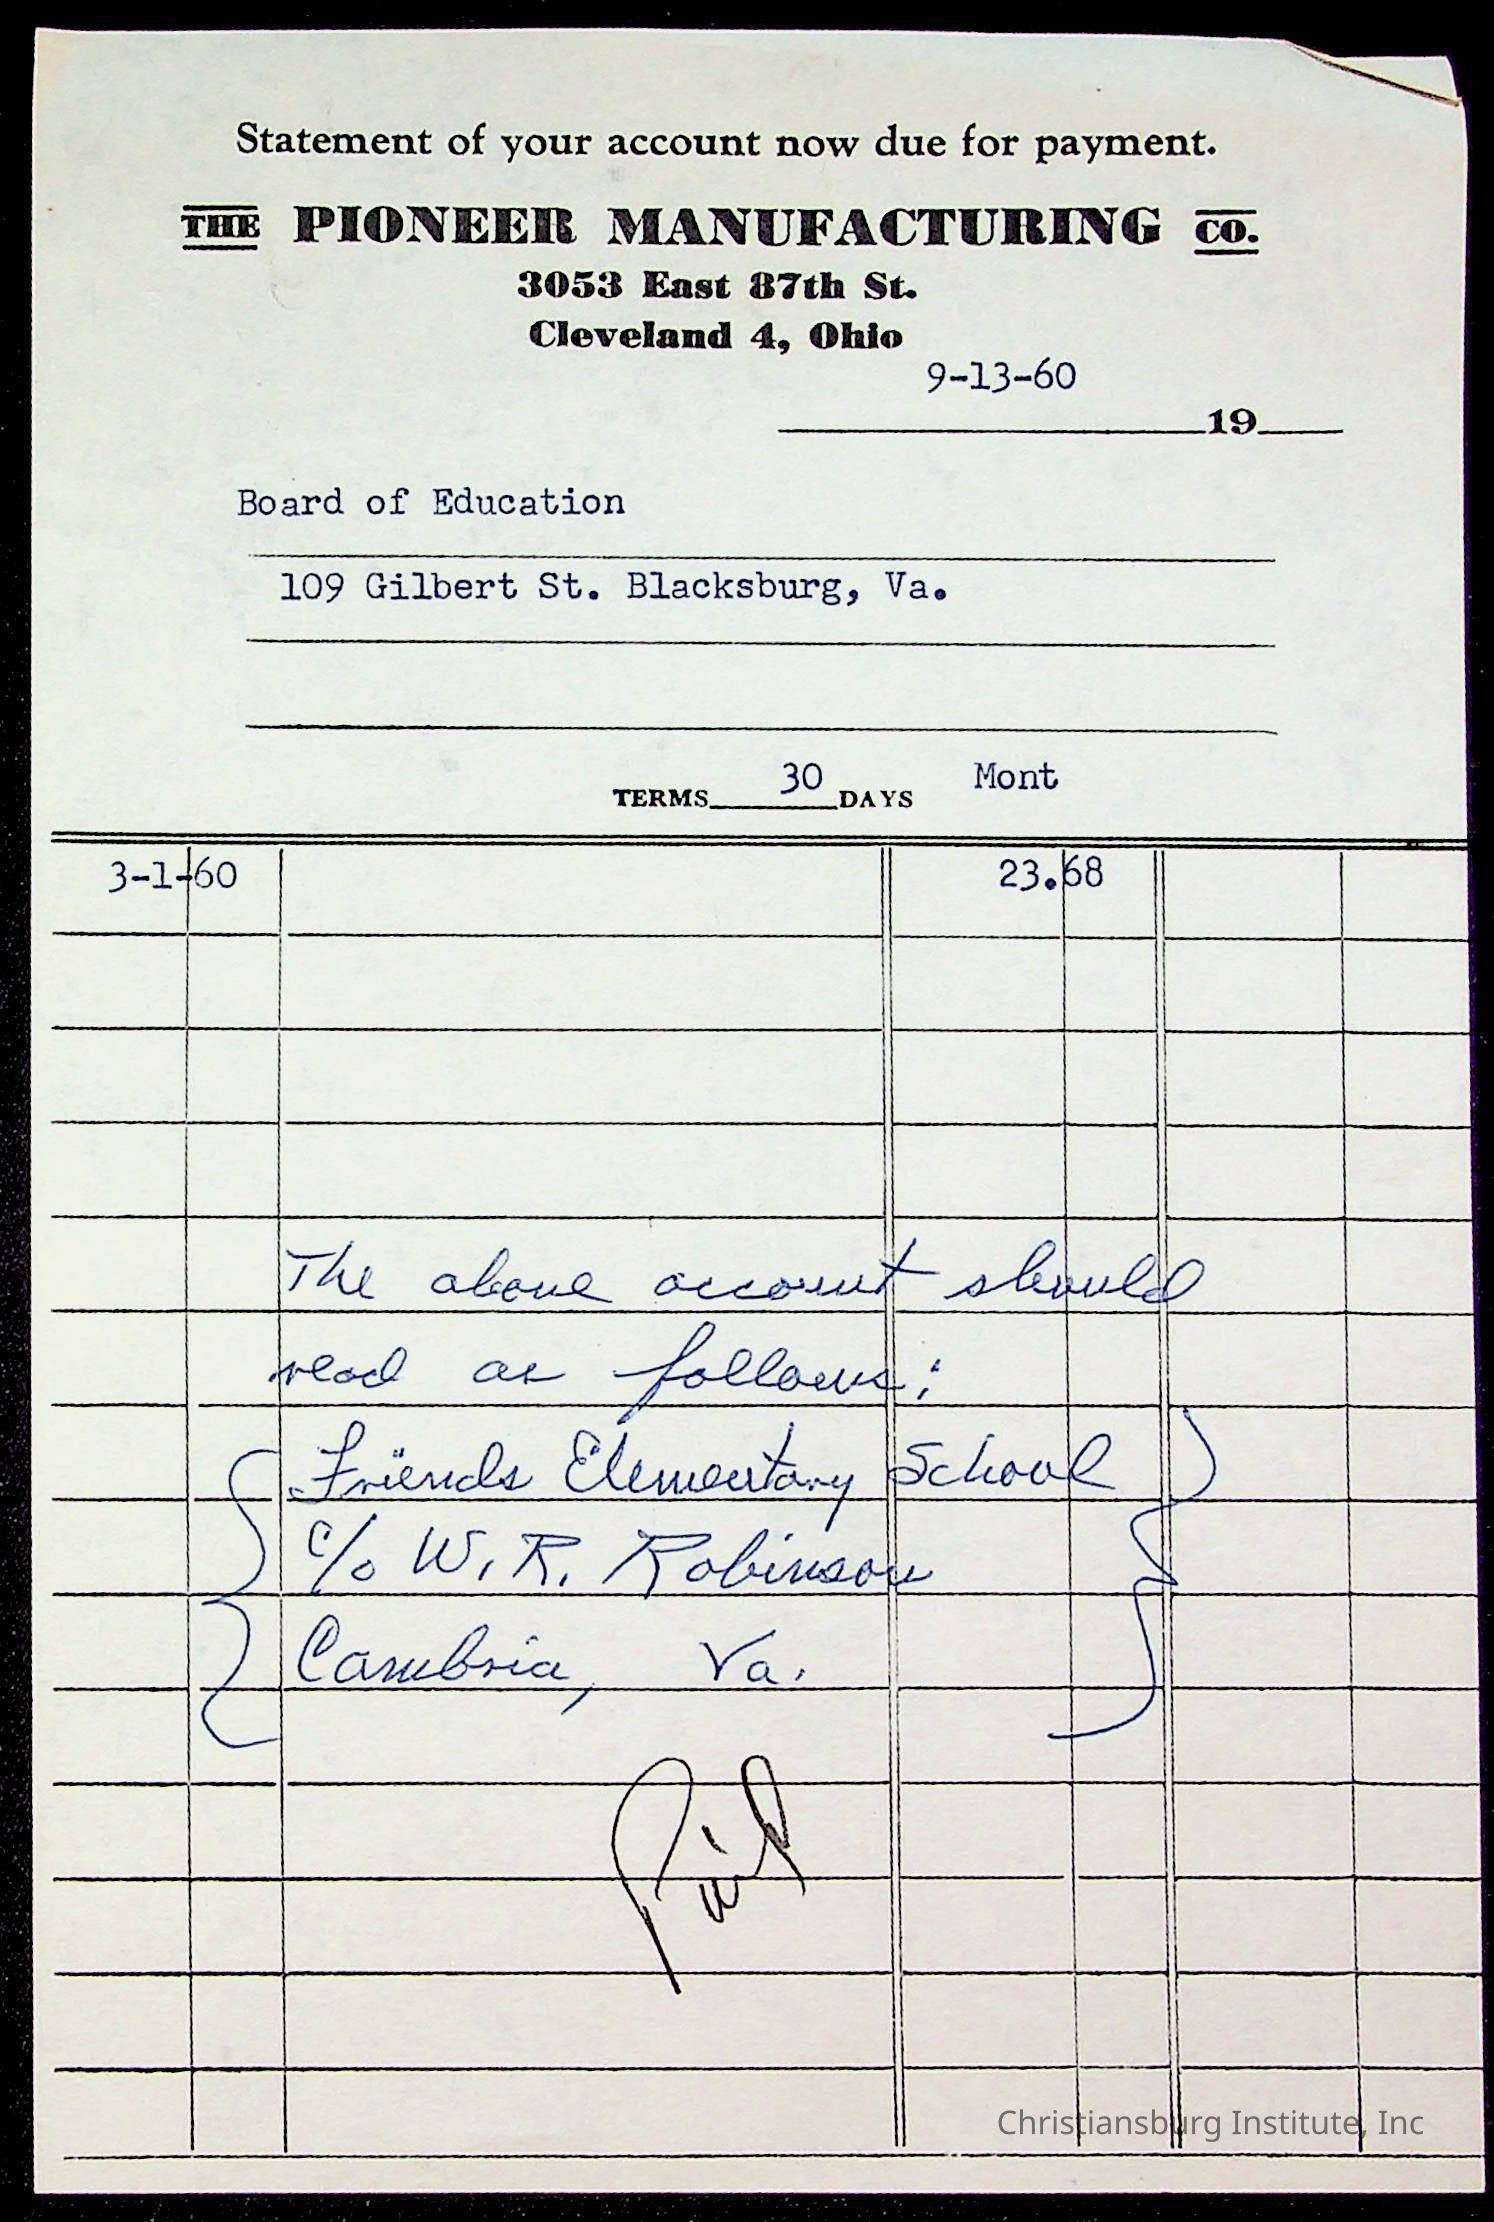 Statement of your account now due for payment.
THE PIONEER MANUFACTURING CO.
3053 East 87th St.
Cleveland 4, Ohio
9-13-60
19
Board of Education
109 Gilbert St. Blacksburg, Va.
TERMS 30 DAYS Mont
3-1-60 23.68
The above account should
read as follows:
Friends Elementary School
c/o W. R. Robinson
Cambria, Va.
Paid
Christiansburg Institute, Inc